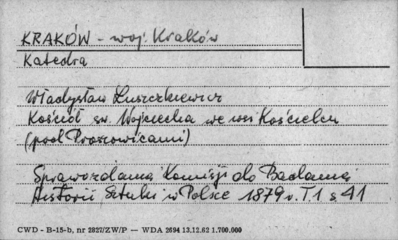 KRAKÓW - woj. Kraków
Katedra
Władysław Łuszczkiewicz
Kościół sw. Wojciecha we wsi Kościelcu
(pod Proszowicami)
Sprawozdania Komisji do Badania
Historii Sztuki w Polsce 1879 r. T. 1 s 41
CWD - B-15-b, nr 2827/ZW/P — WDA 2694 13.12.62 1.700.000